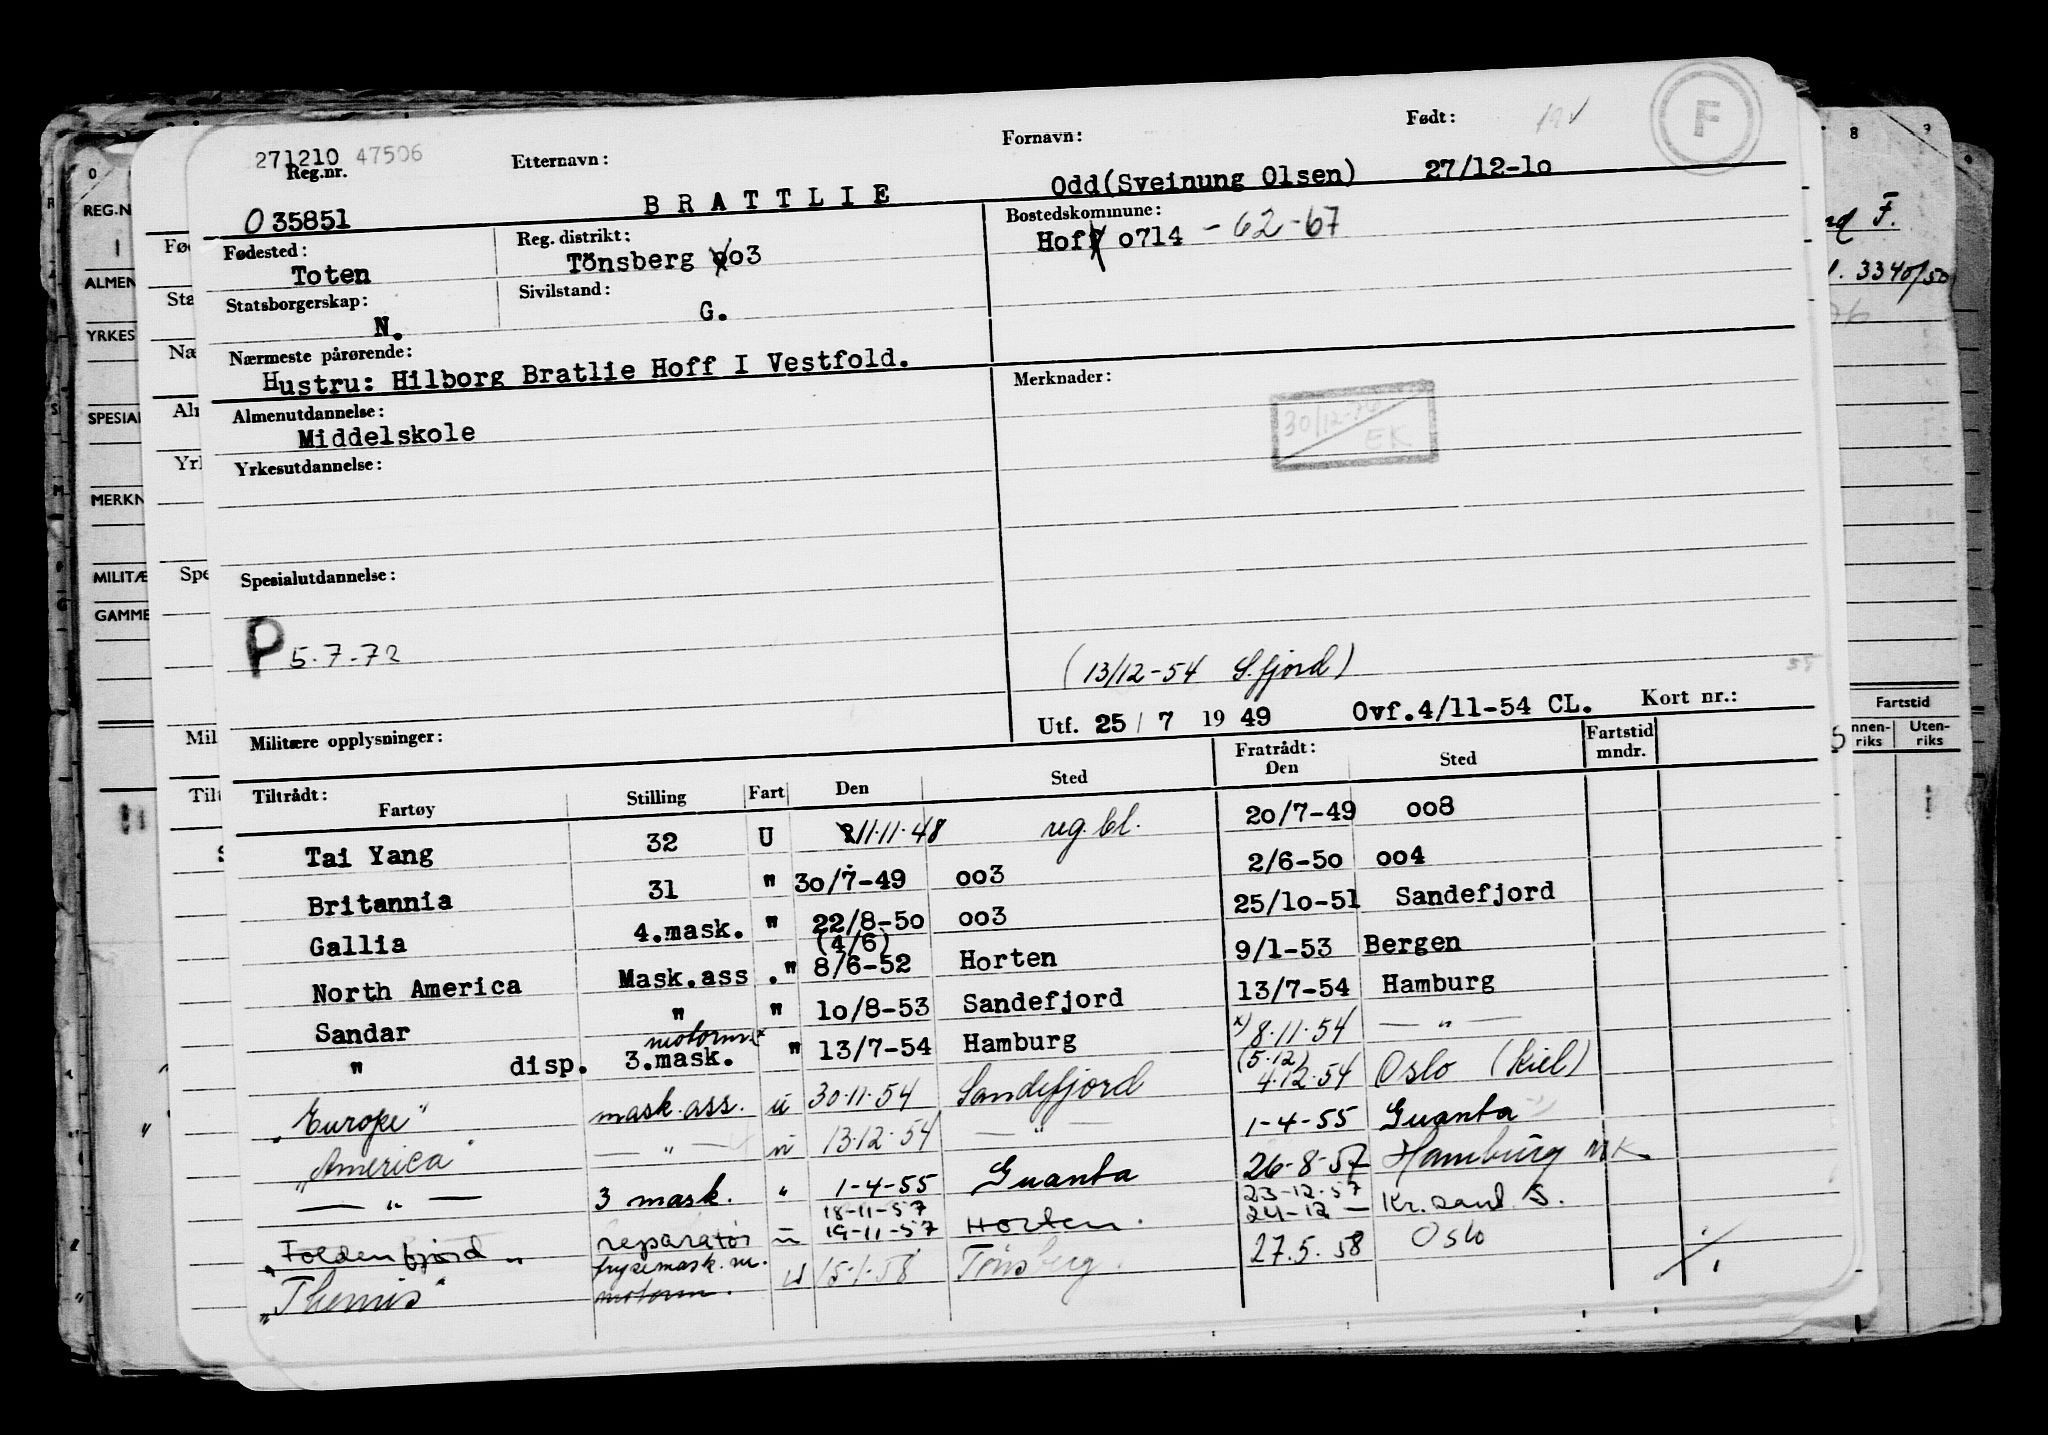 271210 47506
Reg.nr.
Etternavn:
Fornavn:
Født:
F
O 35851
BRATTLIE
Odd(Sveinung Olsen)
27/12-1o
Fødested:
Toten
Reg. distrikt:
Tönsberg oo3
Bostedskommune:
Hoff o714 - 62-67
Statsborgerskap:
N.
Sivilstand:
G.
Nærmeste pårørende:
Hustru: Hilborg Bratlie Hoff I Vestfold.
Merknader:
30/12-74
EK
Almenutdannelse:
Middelskole
Yrkesutdannelse:
Spesialutdannelse:
P 5.7-72
(13/12-54 S.fjord)
Utf. 25/7 1949 Ovf.4/11-54 CL. Kort nr.:
Militære opplysninger:
Tiltrådt:
Fartøy Stilling Fart Den Sted
Fratrådt:
Den Sted
Fartstid
mndr.
Tai Yang 32 U 11.11.48 reg.bl. 20/7-49 oo8
Britannia 31 " 3o/7-49 oo3 2/6-5o oo4
Gallia 4.mask. " 22/8-5o oo3 25/1o-51 Sandefjord
(4/6)
North America Mask.ass. " 8/6-52 Horten 9/1-53 Bergen
Sandar " " 1o/8-53 Sandefjord 13/7-54 Hamburg
motorm x
" disp. 3.mask. " 13/7-54 Hamburg x) 8.11.54 — " —
(5.12)
"Europe" mask.ass. u 30.11.54 Sandefjord 4.12.54 Oslo (Kiel)
"America" — " — u 13.12.54 — " — 1-4-55 Guanta
— " — 3 mask. " 1-4-55 Guanta 26-8-57 Hamburg MK
18-11-57 23-12-57
"Foldenfjord" reparatør u 19-11-57 Horten. 24-12 — Kr.sand S.
frysemask.m.
"Themis" motorm. u 15.1.58 Tønsberg. 27.5.58 Oslo
REG.N
ALMEN
YRKES
SPESIAL
MERKN
MILITÆ
GAMME
Fød
Sta
Næ
Aln
Yrk
Spe
Mil
Tilt
8 9
nd F.
3340/50
Fartstid
nnen-
riks
Uten-
riks